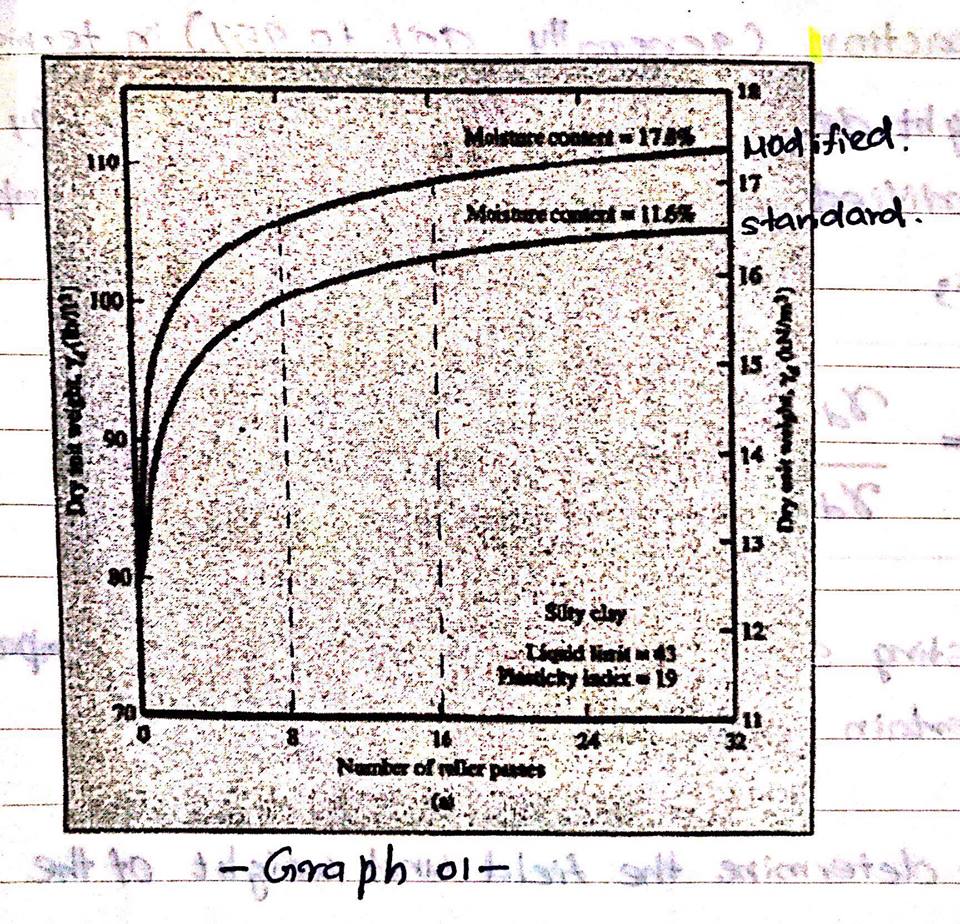 18
Moisture content = 17.8%
Modified.
110
17
Moisture content = 11.6%
standard.
16
100
Dry unit weight, γd (lb/ft³)
Dry unit weight, γd (kN/m³)
15
90
14
13
80
Silty clay
12
Liquid limit = 43
Plasticity index = 19
70
11
0
8
16
24
32
Number of roller passes
(a)
- Graph 01 -